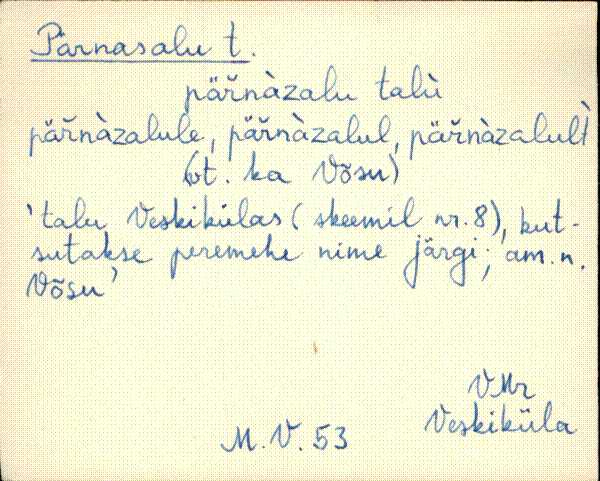 Pärnasalu t.
pär̆nàzalu talù
pär̆nàzalule, pär̆nàzalul, pär̆nàzalult̀
(vt. ka Võsu)
'talu Veskikülas (skeemil nr. 8), kut-
sutakse peremehe nime järgi; am. n.
Võsu'
VMr
Veskiküla
M. V. 53